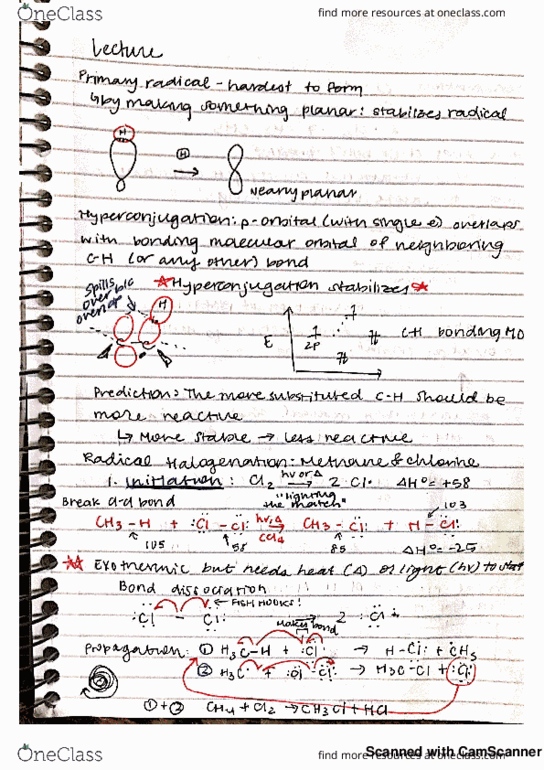 OneClass
find more resources at oneclass.com
Lecture
Primary radical - hardest to form
↳ by making something planar: stabilizes radical
H
H
Neary planar
Hyperconjugation: p-orbital (with single e) overlaps
with bonding molecular orbital of neighboring
C-H (or any other) bond
☆Hyperconjugation stabilizes☆
Spills over b/c overlap
H
E
2p
C-H bonding MO
Prediction: The more substituted C-H should be
more reactive
↳ More stable → less reactive
Radical Halogenation: Methane & chlorine
1. Initiation: Cl2 hv or Δ → 2 Cl· ΔH°= +58
"lighting the match"
Break cl-cl bond
103
CH3-H + :Cl-Cl: hv,Δ → CCl4 CH3-Cl: + H-Cl:
105 58 85 ΔH°= -25
☆☆ Exothermic but needs heat (Δ) or light (hv) to start
Bond dissociation
FISH HOOKS!
:Cl - Cl: → 2 :Cl·
Making bond
Propagation: ① H3C-H + :Cl· → H-Cl: + ·CH3
② H3C· + :Cl-Cl: → H3C-Cl + :Cl·
①+② CH4 + Cl2 → CH3Cl + HCl
OneClass
find more resources at oneclass.com
Scanned with CamScanner